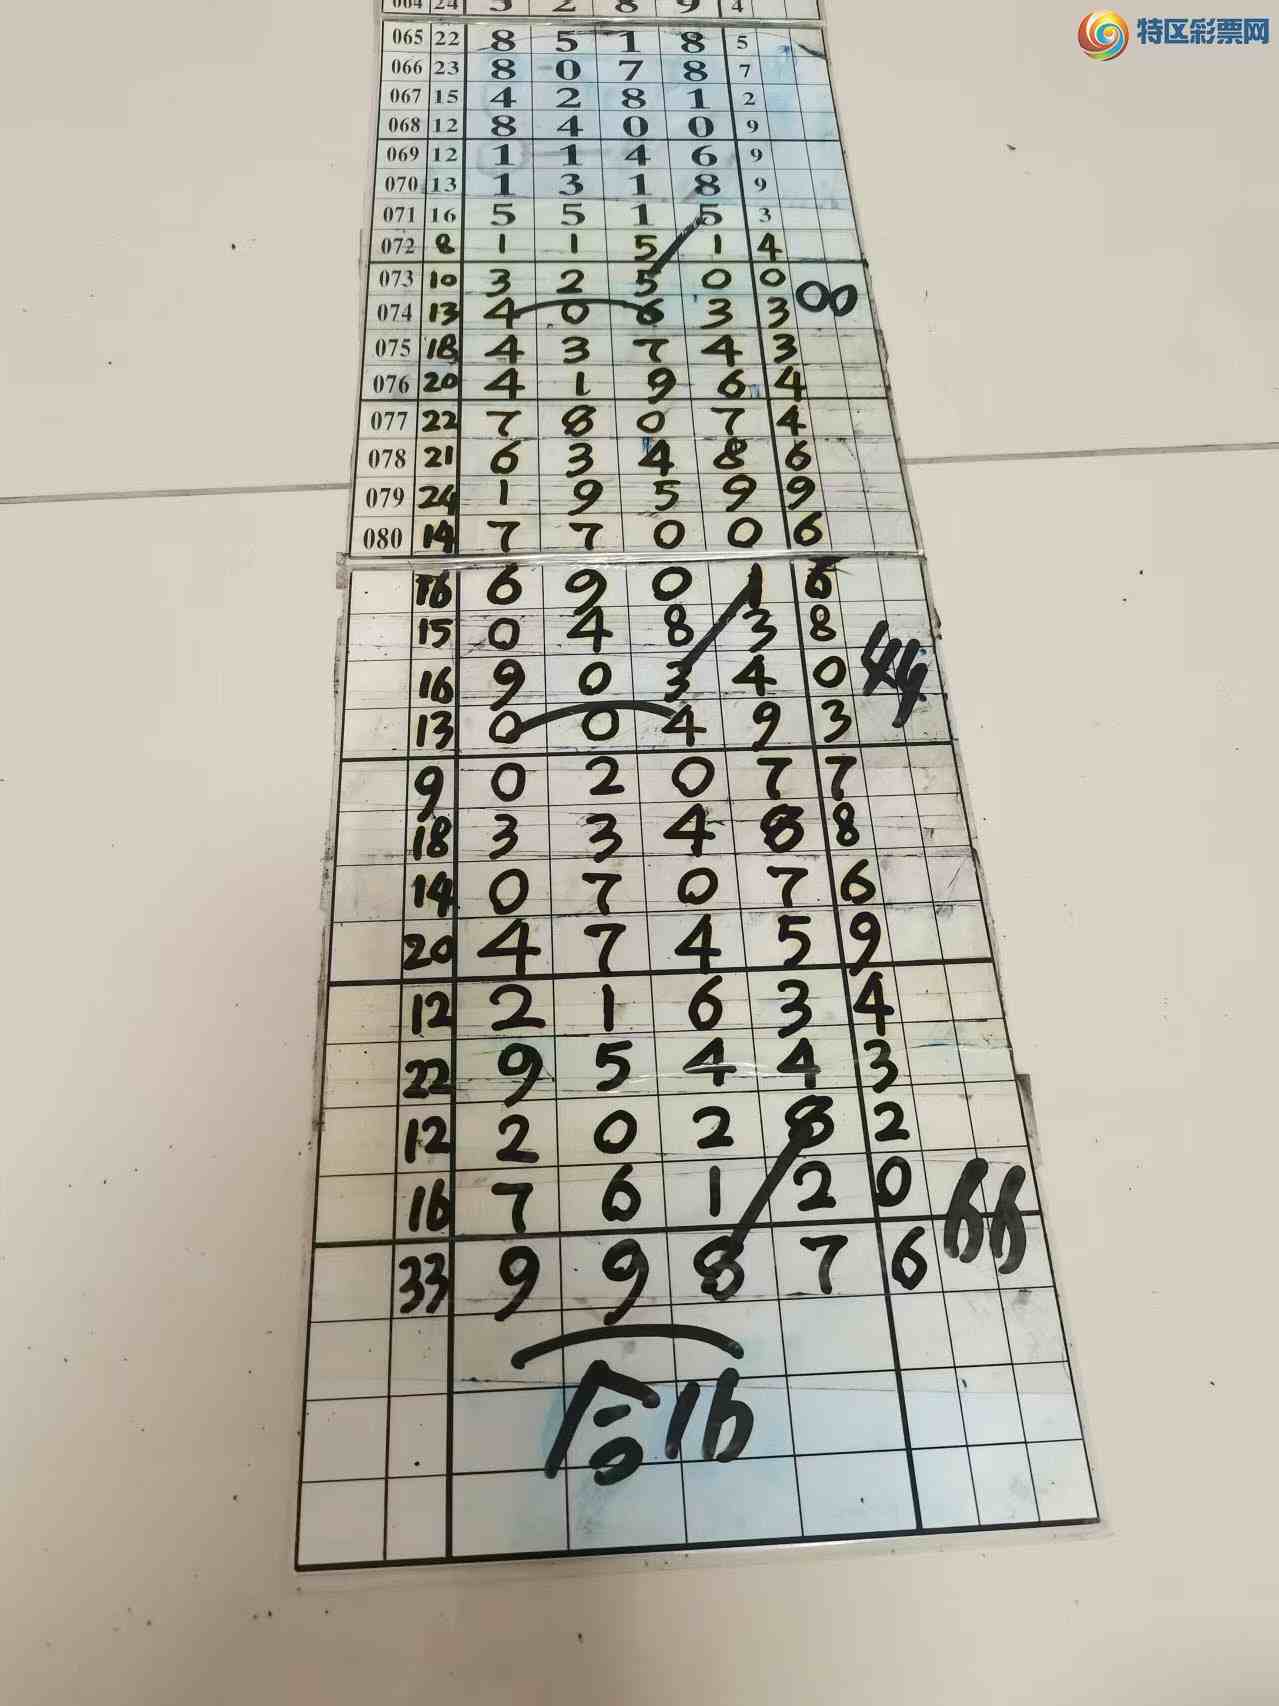 特区彩票网
064 24 5 2 8 9 4
065 22 8 5 1 8 5
066 23 8 0 7 8 7
067 15 4 2 8 1 2
068 12 8 4 0 0 9
069 12 1 1 4 6 9
070 13 1 3 1 8 9
071 16 5 5 1 5 3
072 8 1 1 5 1 4
073 10 3 2 5 0 0 00
074 13 4 0 6 3 3
075 18 4 3 7 4 3
076 20 4 1 9 6 4
077 22 7 8 0 7 4
078 21 6 3 4 8 6
079 24 1 9 5 9 9
080 14 7 7 0 0 6
16 6 9 0 1 6
15 0 4 8 3 8
16 9 0 3 4 0 44
13 0 0 4 9 3
9 0 2 0 7 7
18 3 3 4 8 8
14 0 7 0 7 6
20 4 7 4 5 9
12 2 1 6 3 4
22 9 5 4 4 3
12 2 0 2 8 2
16 7 6 1 2 0 66
33 9 9 8 7 6
合16